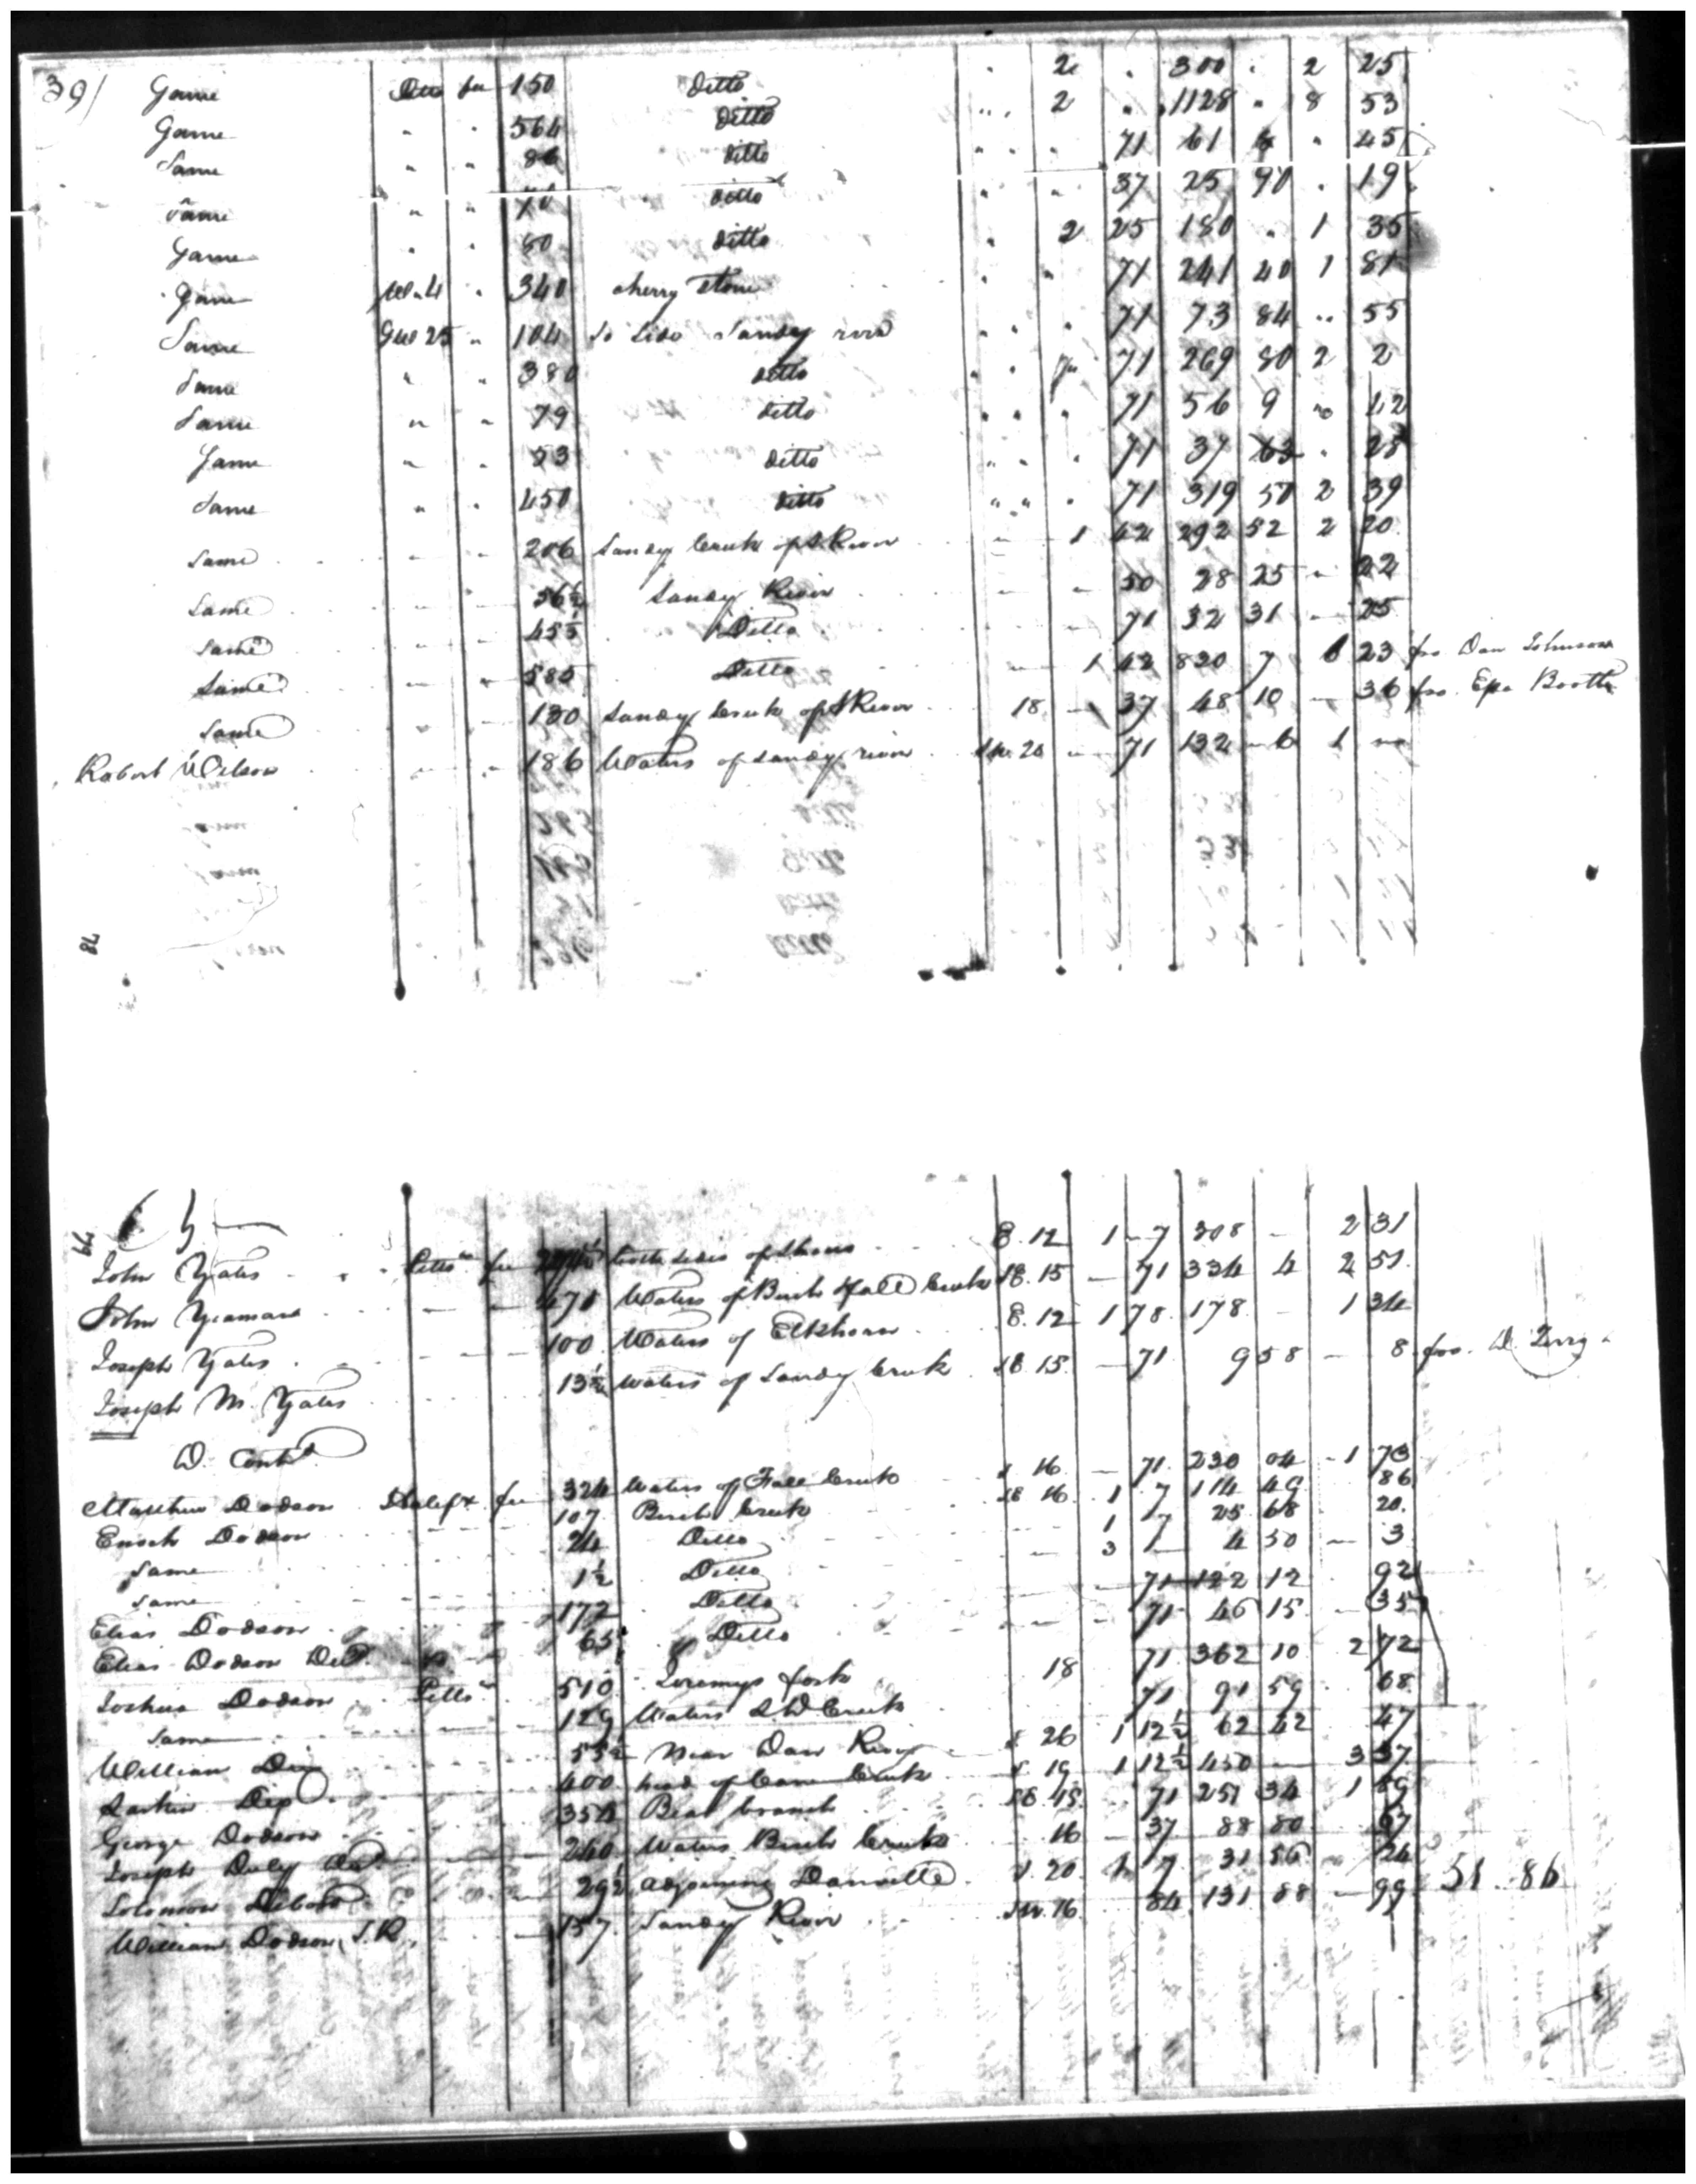 39/ Same Ditto fee 150 Ditto " 2 " 300 " 2 25
Same " " 564 Ditto " 2 " 1128 " 8 53
Same " " 86 Ditto " " 71 61 6 " 45
Same " " 70 Ditto " " 37 25 90 " 19
Same " " 80 Ditto " 2 25 180 " 1 35
Same " 340 cherry stone " " 71 241 40 1 81
Same " 104 So Side Sandy river " " 71 73 84 " 55
Same " " 380 Ditto " " 71 269 80 2 2
Same " " 79 Ditto " " 71 56 9 " 42
Same " " 53 Ditto " " 71 37 63 " 28
Same " " 450 Ditto " " 71 319 50 2 39
Same " " 206 Sandy Creek of S River — 1 42 292 52 2 20
Same " " 56½ Sandy River — — 50 28 25 — 22
Same " " 45½ Ditto — — 71 32 31 — 25
Same " " 585 Ditto — 1 42 830 7 6 23 fro Dan Johnson
Same " " 130 Sandy Creek of S River 18 — 37 48 10 — 36 fro Epa Booth
Robert Wilson " " 186 Waters of Sandy river SW. 20 — 71 132 6 1
78
79
Y
John Yates Pitts.a fee both sides of 8. 12 1 7 308 — 2 31
John Yeaman — — 470 Waters of Birch & fall Creek SE. 15 — 71 334 4 2 51
Joseph Yates — — 100 Waters of Elkhorn 8. 12 1 78 178 — 1 34
Joseph M. Yates 13½ Waters of Sandy Creek SE 15 — 71 9 58 — 8 fro. D. Terry
D. Contd.
Matthew Dodson Halifx fee 324 Waters of Fall Creek 16 — 71 230 04 1 73
Enoch Dodson 107 Birch Creek SE 16 1 7 114 49 86
Same 24 Ditto — 1 7 25 68 20
Same 1½ Ditto — 3 — 4 50 — 3
Elias Dodson 172 Ditto 71 122 12 92
Elias Dodson Decd. 65 Ditto — — 71 46 15 — 35
Joshua Dodson Pitts.a 510 Jeremys fork 18 71 362 10 2 72
Same 129 Waters Creek 71 91 59 68
William Dix 55½ Near Dan River S. 26 1 12½ 62 42 47
Larkin Dix 400 head of Cane Creek S. 19 1 12½ 450 — 3 37
George Dodson 354 Bear branch SE. 15 71 251 34 1 89
Joseph 240 Waters Birch Creek 16 — 37 88 80 67
Solomon 29½ adjoining Danville S. 20 1 7 31 56 24
51 86
William Dodson, S.R. 157 Sandy River SW. 16 84 131 88 — 99